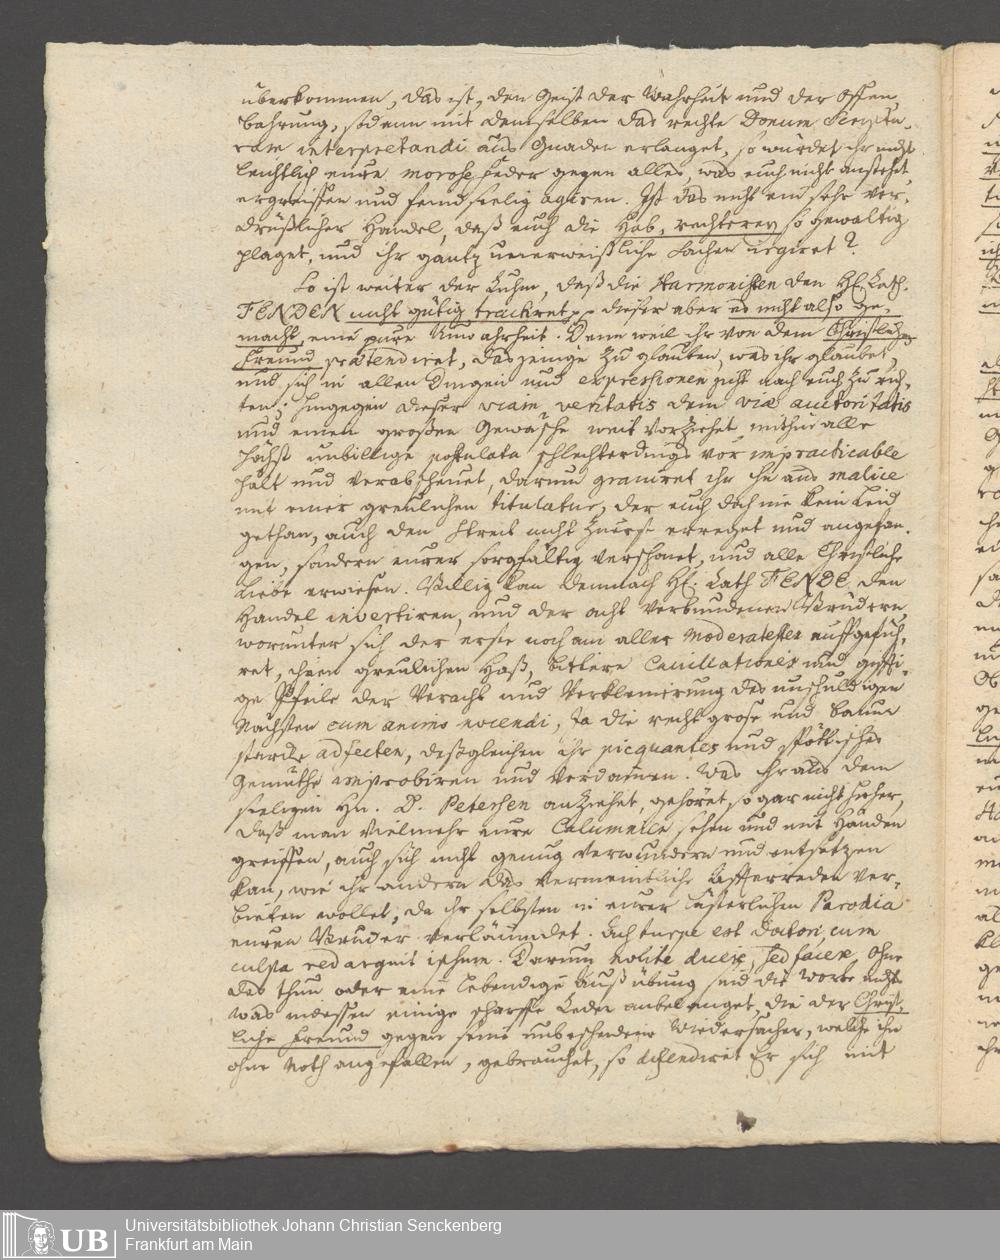 überkommen, das ist, den Geist der Wahrheit und der Offen
bahrung, sodann mit demselben das rechte Donum Scriptu-
ram interpretandi aus Gnaden erlanget, so würdet ihr nicht
leichtlich eure morose Feder gegen alles, was euch nicht anstehet
ergreiffen und feindseelig agiren. Ist das nicht ein sehr ver-
drüßlicher Handel, daß euch die Hab-rechterey so gewaltig
plaget, und ihr gantz unerweißliche Sachen urgiret?
So ist weiter der Ruhm, daß die Harmonisten den H. Rath
FENDEN nicht gütig tractiret, dieser aber es nicht also ge-
macht, eine pure Unwahrheit. Denn weil ihr von dem Christlichen
Freund prætendiret, dasjenige zu glauben, was ihr glaubet,
und sich in allen Dingen und expressionen nach euch zu rich-
ten; hingegen dieser viam veritatis dem viæ auctoritatis
und einem großen Gewäsche weit vorziehet, mithin alle
höchst unbillige postulata schlechterdings vor impracticable
hält und verabscheuet, darum graviret ihr ihn aus malice
mit einer greulichen titulatur, der euch doch nie kein Leid
gethan, auch den Streit nicht zuerst erreget und angefan-
gen, sondern eurer sorgfältig verschonet, und alle Christliche
Liebe erwiesen. Billig kan demnach H. Rath FENDE den
Handel invertiren, und der acht verbundenen Brüdern,
worunter sich der erste noch am aller moderatesten auffgefüh-
ret, ihren greulichen Haß, bittere Cavillationes und gifti-
ge Pfeile der Veracht und Verkleinerung des unschuldigen
Nächsten cum animo nocendi, ja die recht grose und baum
starcke adfecten, deßgleichen ihr picquantes und spöttisches
Gemüthe improbiren und verdammen. Was ihr aus dem
seeligen Hn. D. Petersen anziehet, gehöret so gar nicht hieher,
daß man vielmehr eure Calumnien sehen und mit Händen
greiffen, auch sich nicht genug verwundern und entsetzen
kan, wie ihr andern das vermeintliche Affterreden ver-
bieten wollet, da ihr selbsten in eurer lästerlichen Parodia
euren Bruder verläumdet. Ach turpe est doctori, cum
culpa redarguit ipsum. Darum nolite dicere, sed facere, ohne
das thun oder eine lebendige Außübung sind die Worte nichts
was indessen einige scharffe Reden anbelanget, die der Christ-
liche Freund gegen seine unbescheidene Wiedersacher, welche ihn
ohne Noth angefallen, gebrauchet, so defendiret Er sich mit
UB
Universitätsbibliothek Johann Christian Senckenberg
Frankfurt am Main